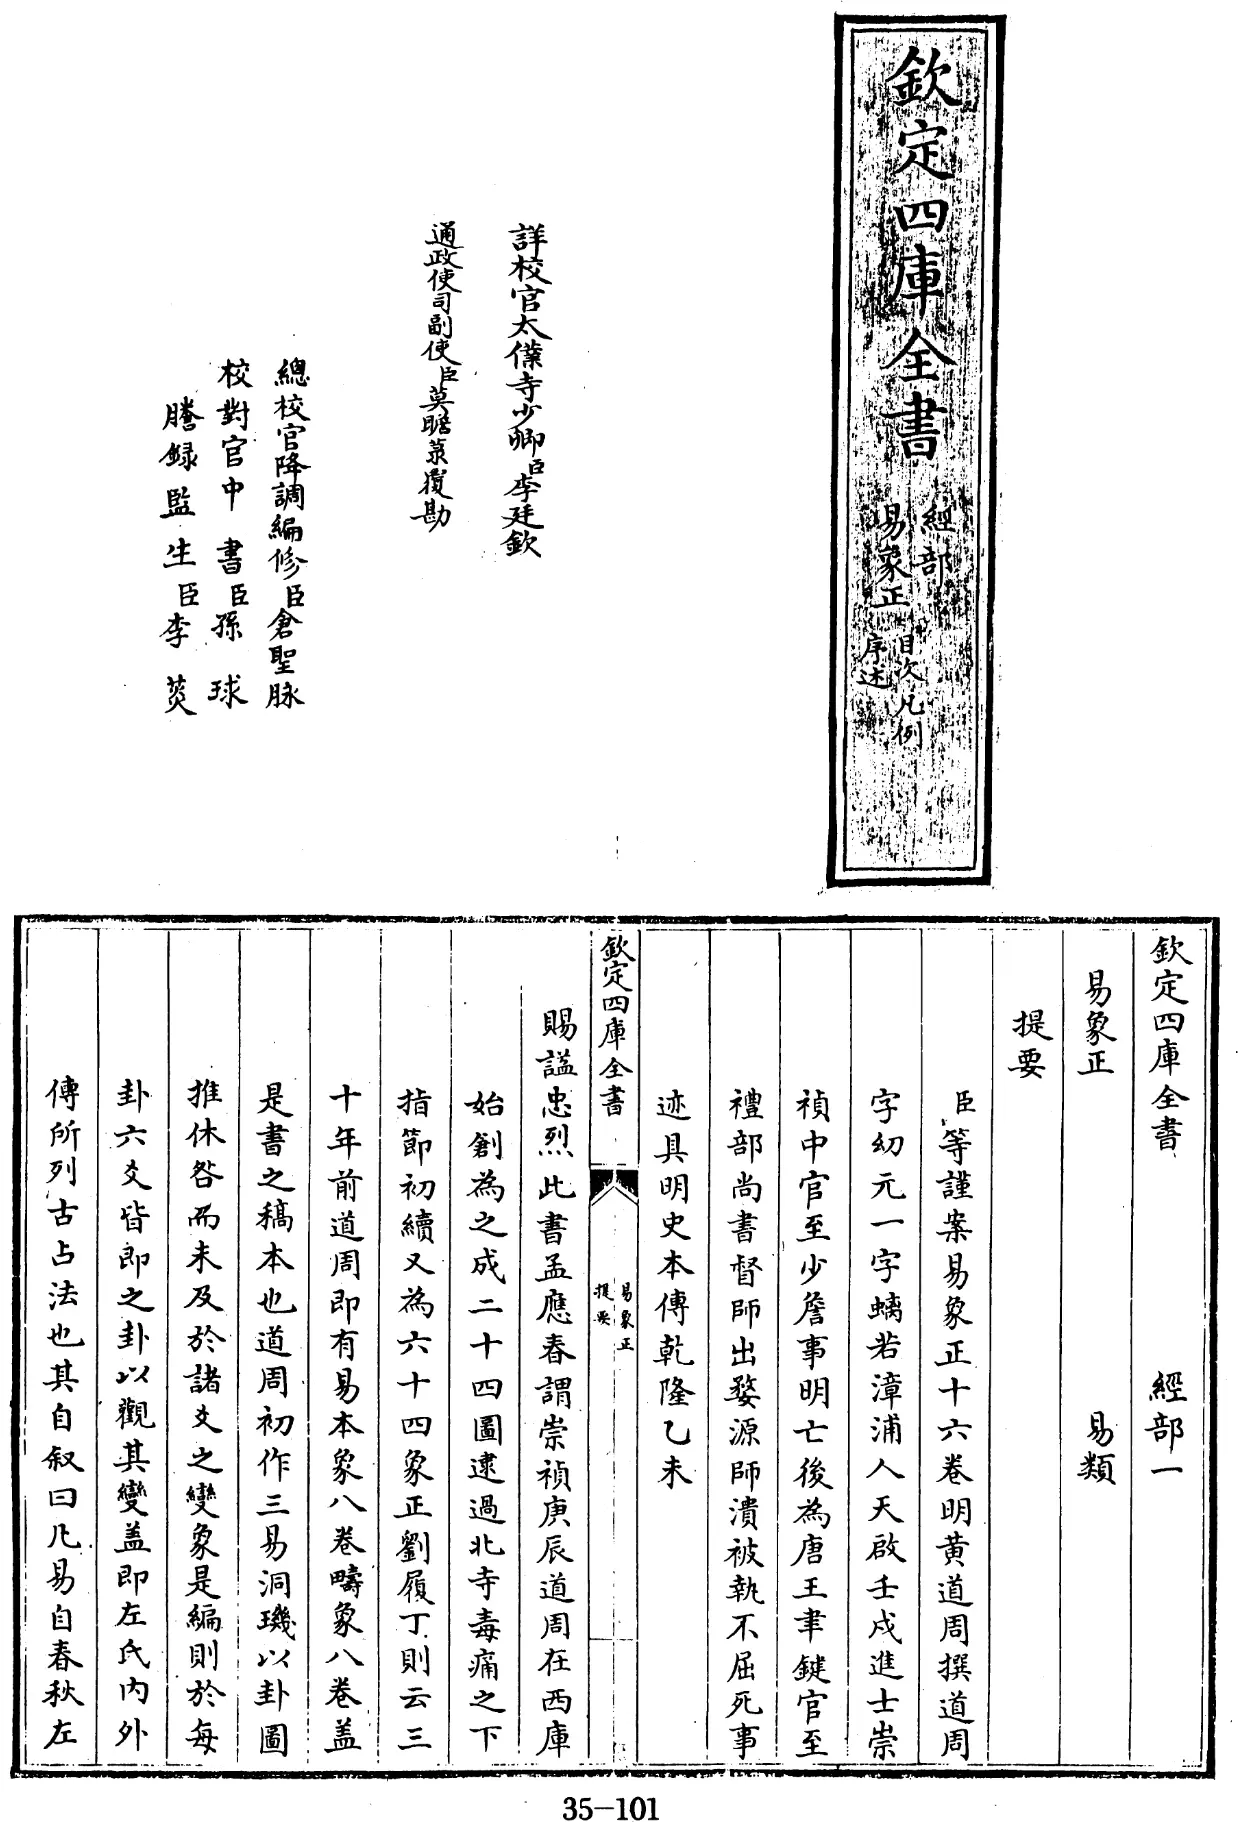 欽定四庫全書
經部
易象正
目次凡例
序述
詳校官太僕寺少卿臣李廷欽
通政使司副使臣莫瞻菉覆勘
總校官降調編修臣倉聖脉
校對官中書臣孫球
謄錄監生臣李荧
欽定四庫全書 經部一
易象正 易類
提要
臣等謹案易象正十六卷明黄道周撰道周
字幼元一字螭若漳浦人天啟壬戍進士崇
禎中官至少詹事明亡後為唐王聿鍵官至
禮部尚書督師出婺源師潰被執不屈死事
迹具明史本傳乾隆乙未
欽定四庫全書
易象正
提要
賜諡忠烈此書孟應春謂崇禎庚辰道周在西庫
始創為之成二十四圖逮過北寺毒痛之下
指節初續又為六十四象正劉履丁則云三
十年前道周即有易本象八卷疇象八卷盖
是書之稿本也道周初作三易洞璣以卦圖
推休咎而未及於諸爻之變象是編則於每
卦六爻皆即之卦以觀其變盖即左氏内外
傳所列古占法也其自叙曰凡易自春秋左
35-101